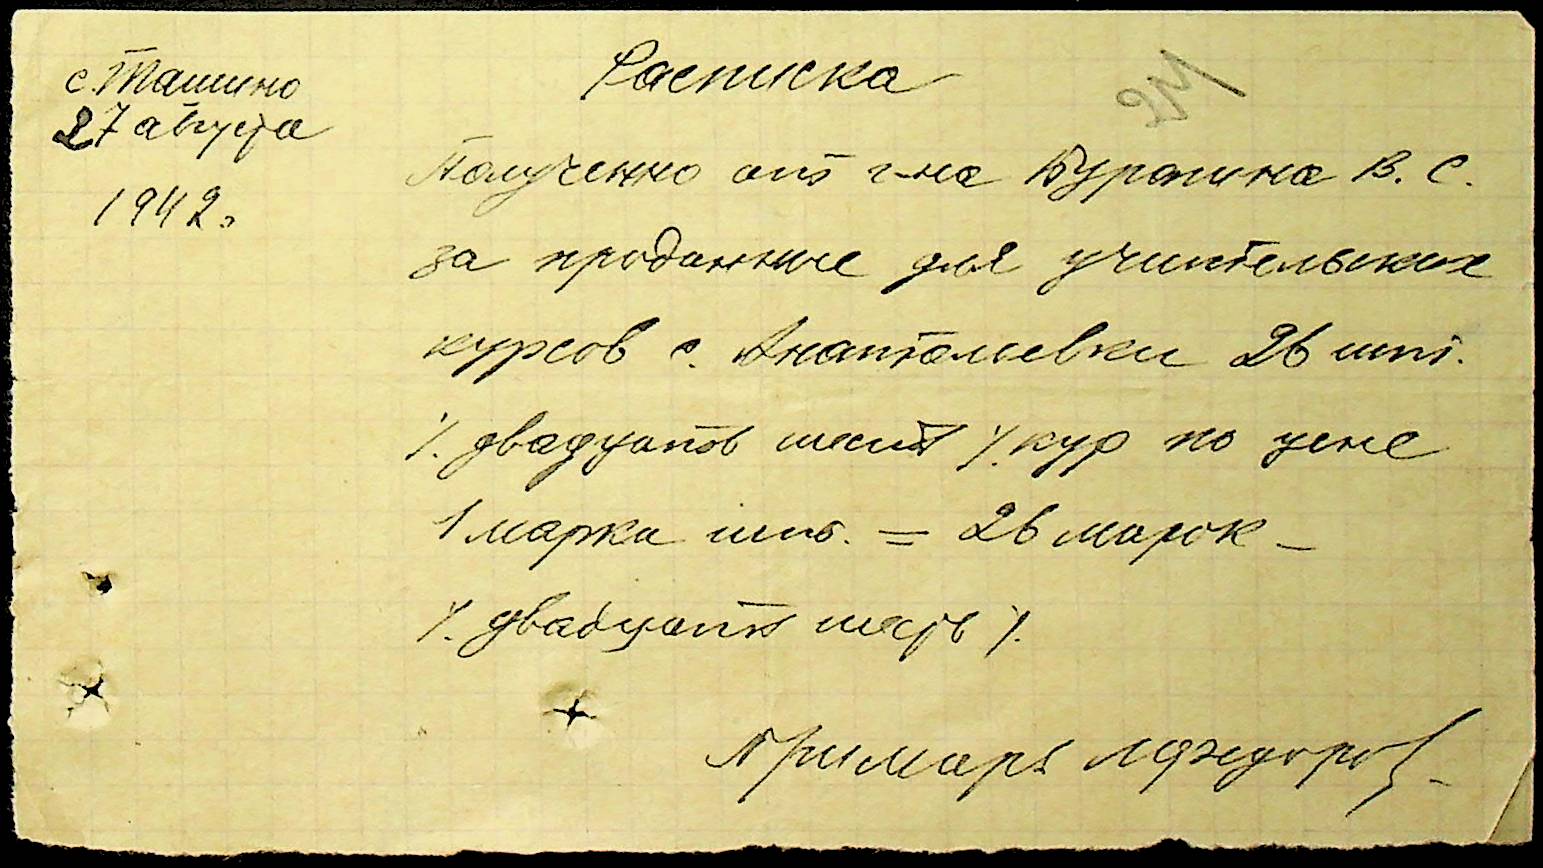 с. Ташино
27 августа
1942 г.
Расписка
Полученно от г-на Буропина В. С.
за проданные для учительских
курсов с. Анатольевки 26 шт.
/. двадцать шесть /. кур по цене
1 марка шт. = 26 марок –
/. двадцать шесть /.
Примарь Лфедоров